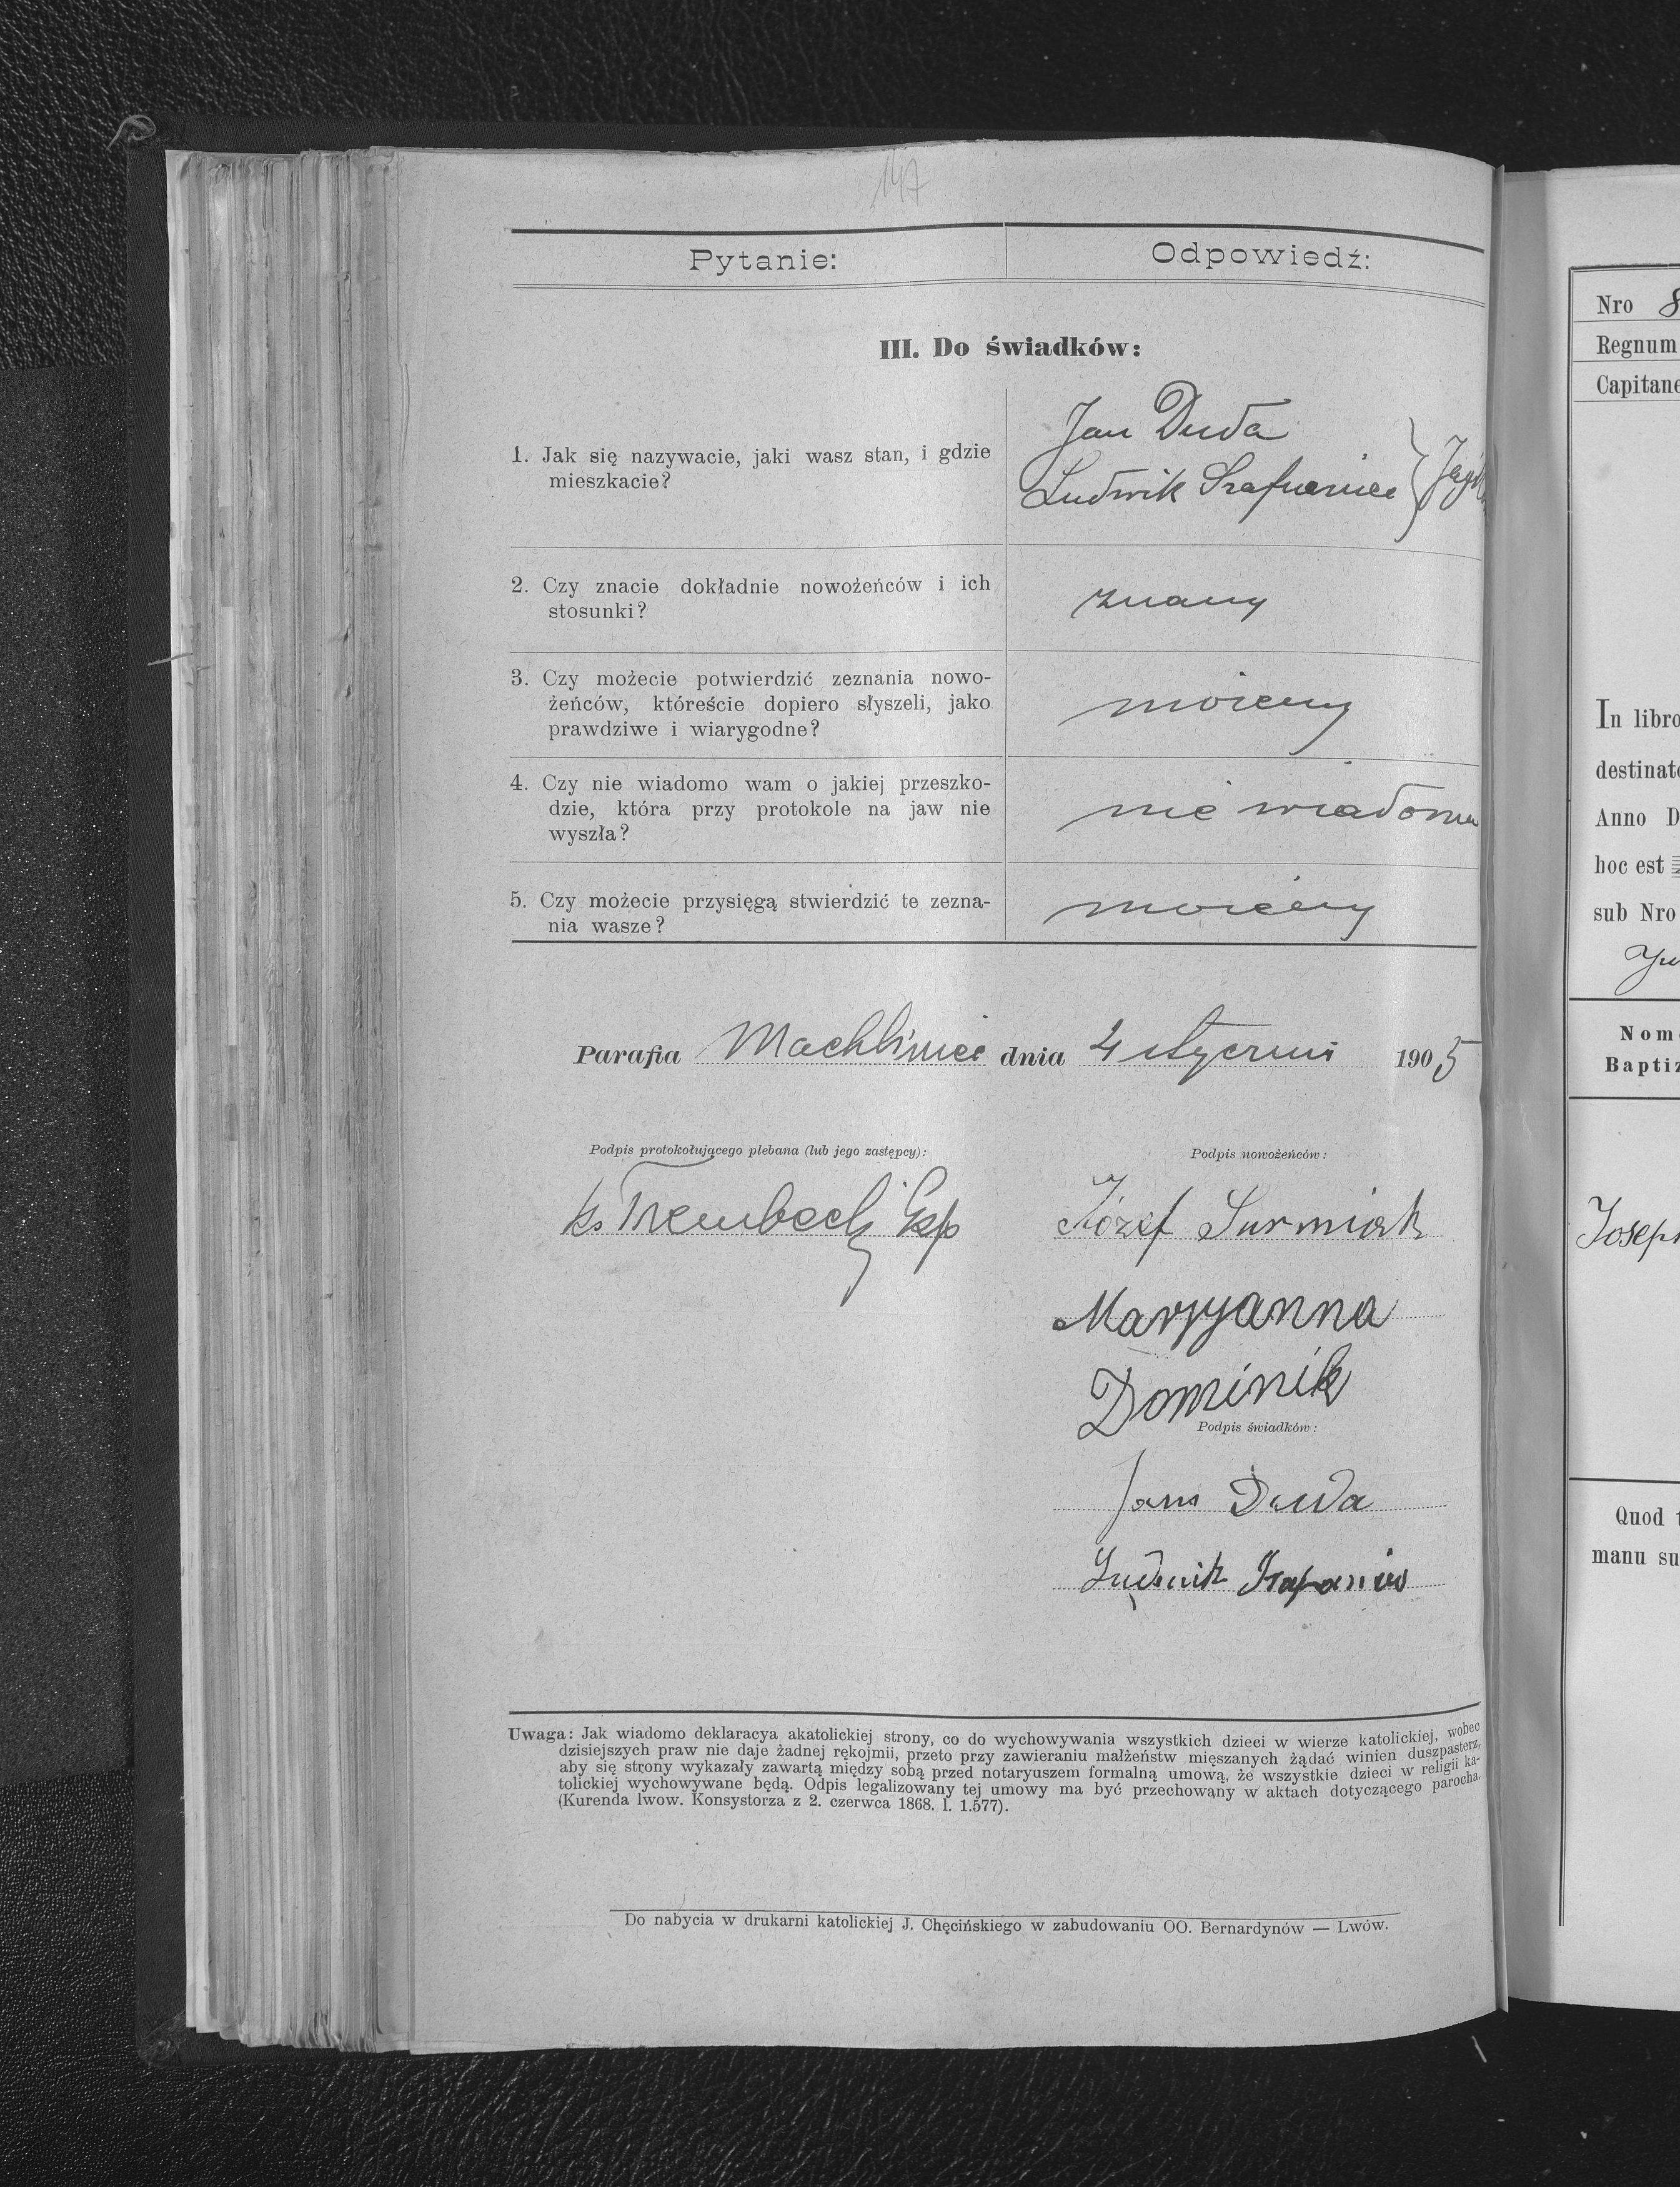 147
Pytanie: Odpowiedź:
III. Do świadków:
1. Jak się nazywacie, jaki wasz stan, i gdzie
mieszkacie?
Jan Duda
Ludwik Szafraniec
2. Czy znacie dokładnie nowożeńców i ich
stosunki?
znamy
3. Czy możecie potwierdzić zeznania nowo-
żeńców, któreście dopiero słyszeli, jako
prawdziwe i wiarygodne?
możemy
4. Czy nie wiadomo wam o jakiej przeszko-
dzie, która przy protokole na jaw nie
wyszła?
nie wiadomo
5. Czy możecie przysięgą stwierdzić te zezna-
nia wasze?
możemy
Parafia Machliniec dnia 4 stycznia 1905
Podpis protokołującego plebana (lub jego zastępcy):
Ks Trembecki
Podpis nowożeńców:
Józef Surmiak
Maryyanna
Dominik
Podpis świadków:
Jan Duda
Ludwik
Uwaga: Jak wiadomo deklaracya akatolickiej strony, co do wychowywania wszystkich dzieci w wierze katolickiej, wobec
dzisiejszych praw nie daje żadnej rękojmii, przeto przy zawieraniu małżeństw mięszanych żądać winien duszpasterz,
aby się strony wykazały zawartą między sobą przed notaryuszem formalną umową, że wszystkie dzieci w religii ka-
tolickiej wychowywane będą. Odpis legalizowany tej umowy ma być przechowany w aktach dotyczącego parocha.
(Kurenda lwow. Konsystorza z 2. czerwca 1868. l. 1.577).
Do nabycia w drukarni katolickiej J. Chęcińskiego w zabudowaniu OO. Bernardynów — Lwów.
Nro 8
Regnum
Capitane
In libro
destinato
Anno D
hoc est
sub Nro
Nom
Baptiz
Joseph
Quod
manu su